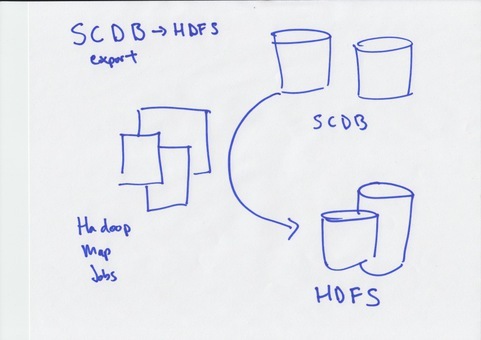 SCDB → HDFS
export
SCDB
Hadoop
Map
Jobs
HDFS